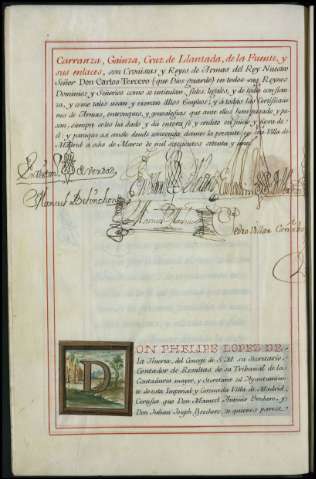 Carranza, Gainza, Cruz de Llantada, de la Fuente, y
sus enlaces, son Cronistas y Reyes de Armas del Rey Nuestro
Señor Don Carlos Tercero (que Dios guarde) en todos sus Reynos
Dominios y Señorios como se intitulan, fieles, legales, y de toda confian-
za, y como tales usan y exercen dhos Empleos; y á todas las Certificacio-
nes de Armas, entronques, y genealogias que antes ellos han pasado, y pa-
san, siempre se les ha dado, y da entera fé y credito en juicio, y fuera de
él; y para que asi conste donde convenga damos la presente en esta Villa de
Madrid á de Marzo de mil setecientos ochenta y
Manuel
DON PHELIPE LOPEZ DE
la Huerta, del Consejo de S.M. su Secretario
Contador de Resultas de su Tribunal de la
Contaduria mayor, y Secretario de Ayuntamien-
to de esta Imperial y Coronada Villa de Madrid.
Certifico que Don Manuel Antonio y
Don Julian Joseph de quienes parece